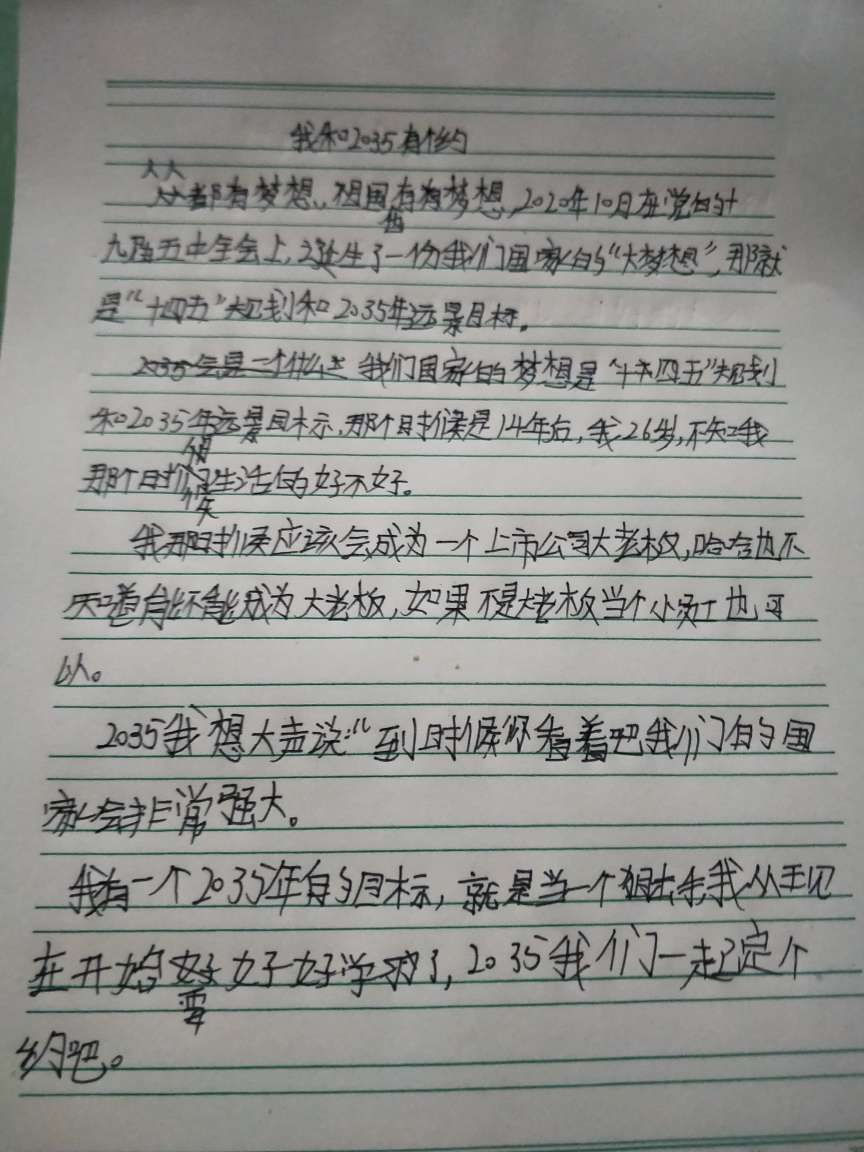 我和2035有个约
人人都有梦想,祖国也有梦想,2020年10月在党的十
九届五中全会上,诞生了一份我们国家的“大梦想”,那就
是“十四五”规划和2035年远景目标。
2035会是一个什么 我们国家的梦想是“十四五”规划
和2035年远景目标,那个时候是14年后,我26岁,不知我
那个时候生活的好不好。
我那时候应该会成为一个上市公司大老板,哈哈也不
知道能不能成为大老板,如果不是大老板当个小员工也可
以。
2035我想大声说:“到时候你看着吧我们的国
家会非常强大。
我有一个2035年的目标,就是当一个 我从现
在开始要好好学习了,2035我们一起定个
约吧。